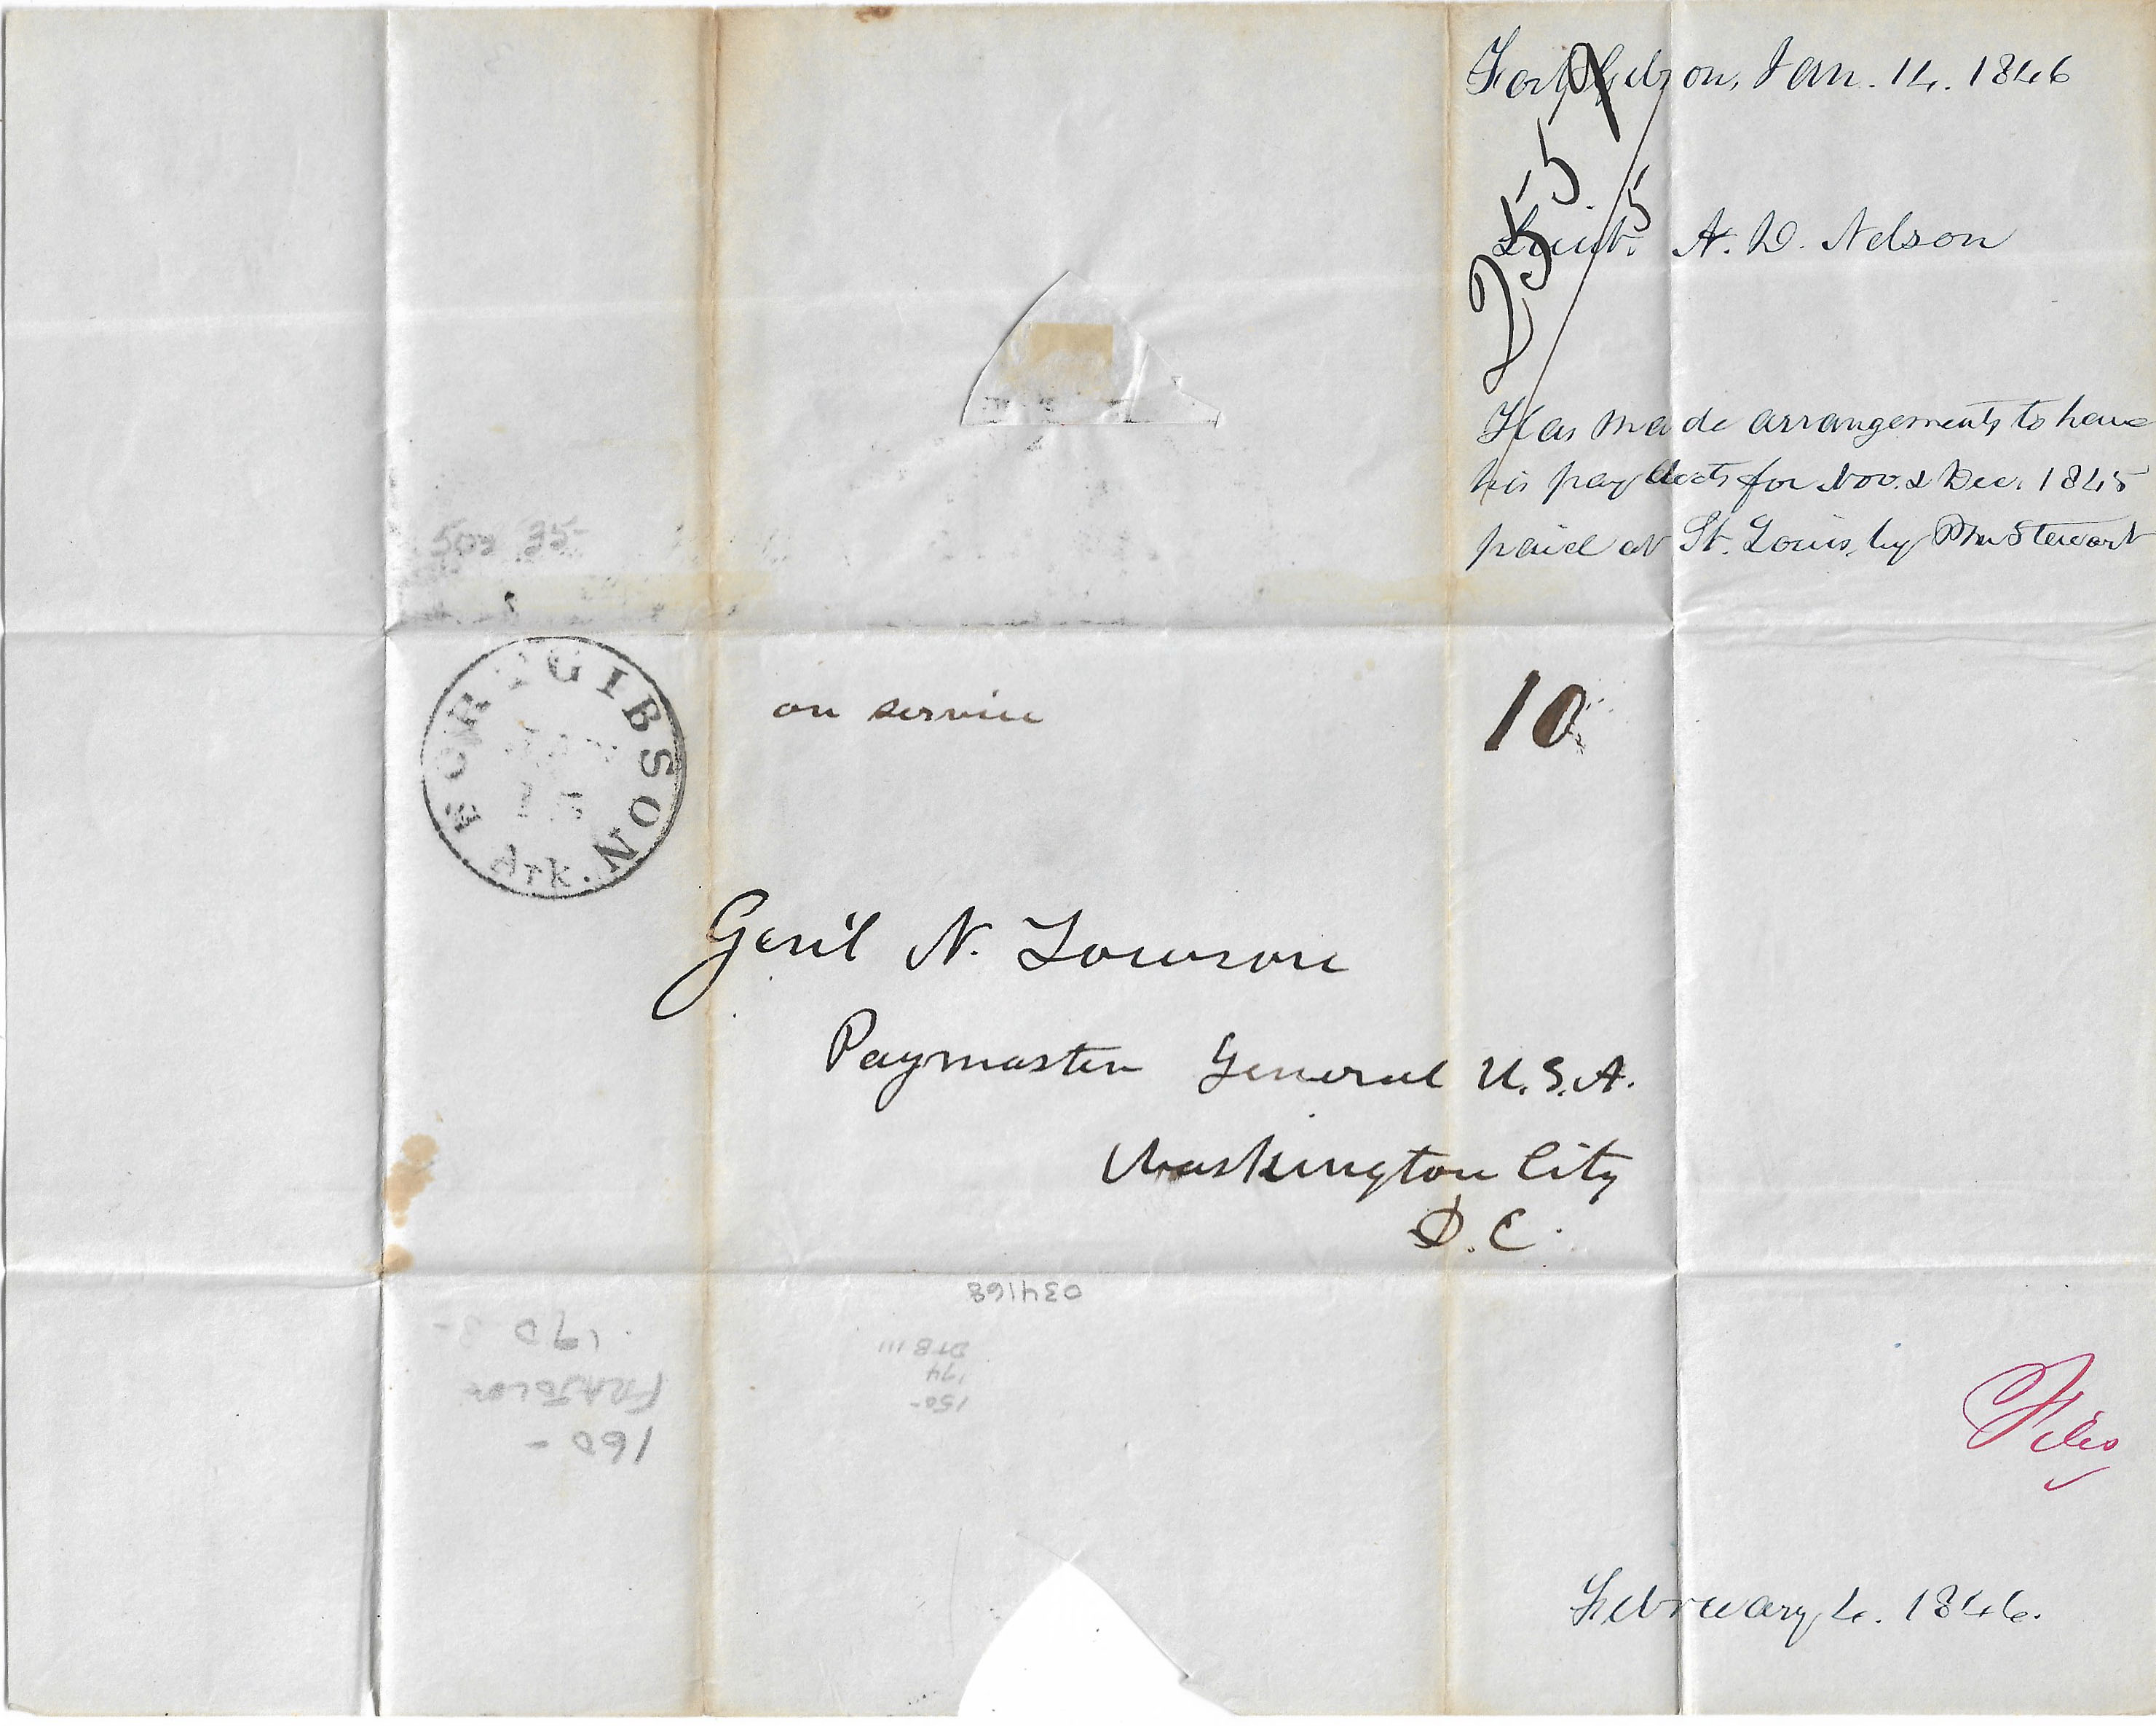 Fort Gibson, Jan. 14. 1846
255
5
Lieut. A. D. Nelson
Has made arrangements to have
his pay accts for Nov. & Dec. 1845
paid at St. Louis, by Pm Stewart
503 35-
FORT GIBSON
JAN
15
Ark.
on service
10
Genl N. Towson
Paymaster General U.S.A.
Washington City
D.C.
034168
DTB III
'94
150-
190
160-
File
February 4. 1846.